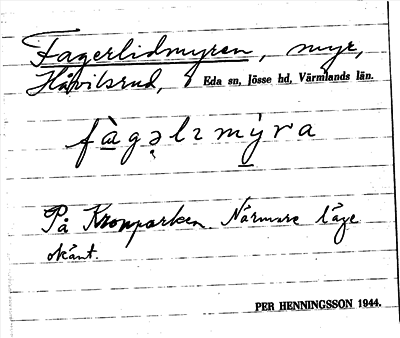 Fagerlidmyren, myr,
Håvilsrud, Eda sn, Jösse hd, Värmlands län.
fàgəlɪ mýra
På Kronparken. Närmare läge
okänt.
PER HENNINGSSON 1944.